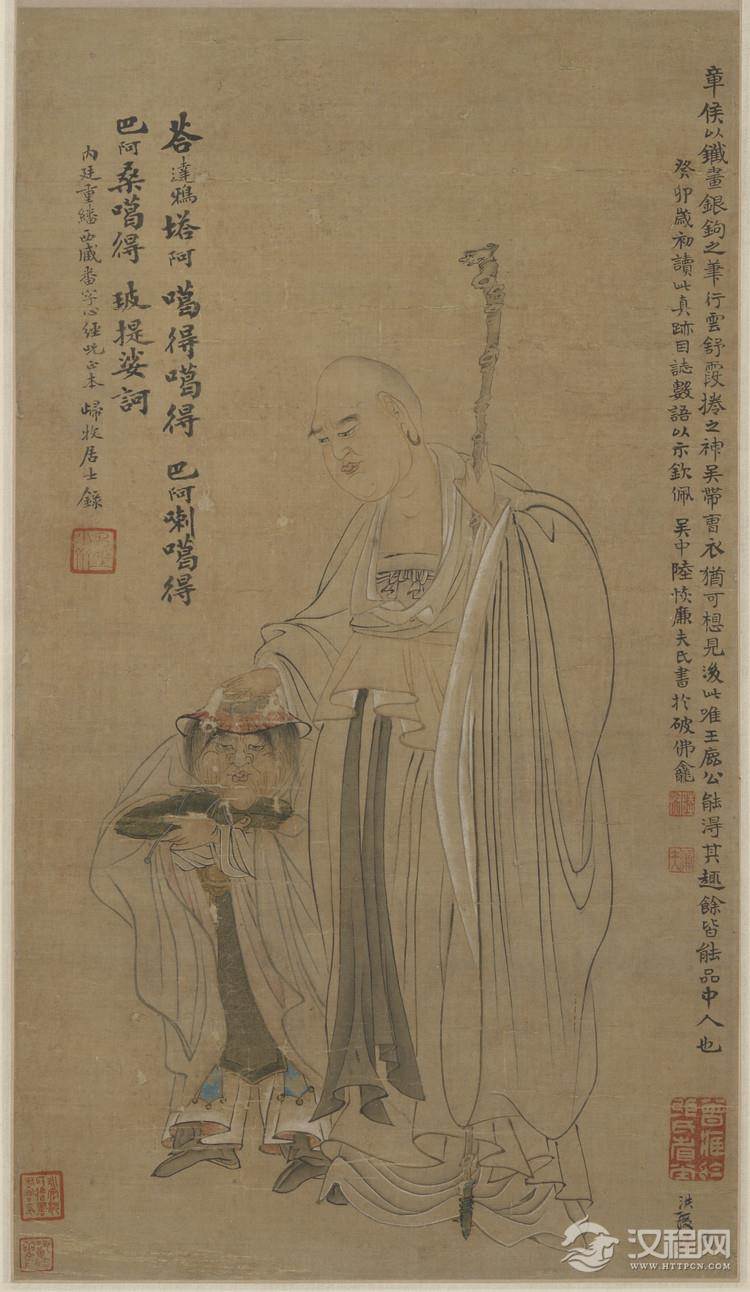 章侯以鐵畫銀鉤之筆行雲舒霞捲之神吳帶曹衣猶可想見後此唯王廉公能得其趣餘皆能品中人也
癸卯歲初讀此真跡目誌數語以示欽佩 吳中陸恢廉夫氏書於破佛龕
荅達鴉塔阿噶得噶得 巴阿喇噶得
巴阿桑噶得 玻提娑訶
內廷重繙西藏番字心經咒正本 歸牧居士錄
洪綬
汉程网
WWW.HTTPCN.COM